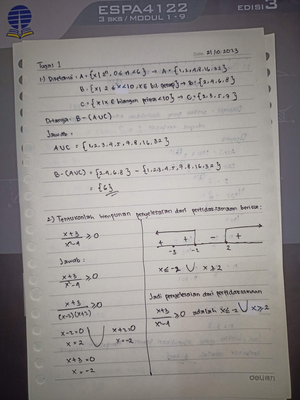 ESPA4122
3 SKS / MODUL 1 - 9
EDISI 3
UNIVERSITAS TERBUKA
Tugas 1
Date 21/10 2023
B = {x | 2 ≤ x < 10, x ∈ bil genap} → B = {2,4,6,8}
C = {x | x ∈ bilangan prima < 10} → C = {2,3,5,7}
Ditanya: B - (AUC)
Jawab:
AUC = {1,2,3,4,5,7,8,16,32}
B - (AUC) = {2,4,6,8} - {1,2,3,4,5,7,8,16,32}
= {6}
2.) Temukanlah himpunan penyelesaian dari pertidaksamaan berikut:
x+3 / x²-4 ≥ 0
Jawab:
x+3 / x²-4 ≥ 0
x+3 / (x-2)(x+2) ≥ 0
x-2=0 V x+2=0
x=2 x=-2
x+3=0
+ - +
-3 -2 2
x≤-2 V x≥2
Jadi penyelesaian dari pertidaksamaan
x+3 / x²-4 ≥ 0 adalah x≤-2 V x≥2